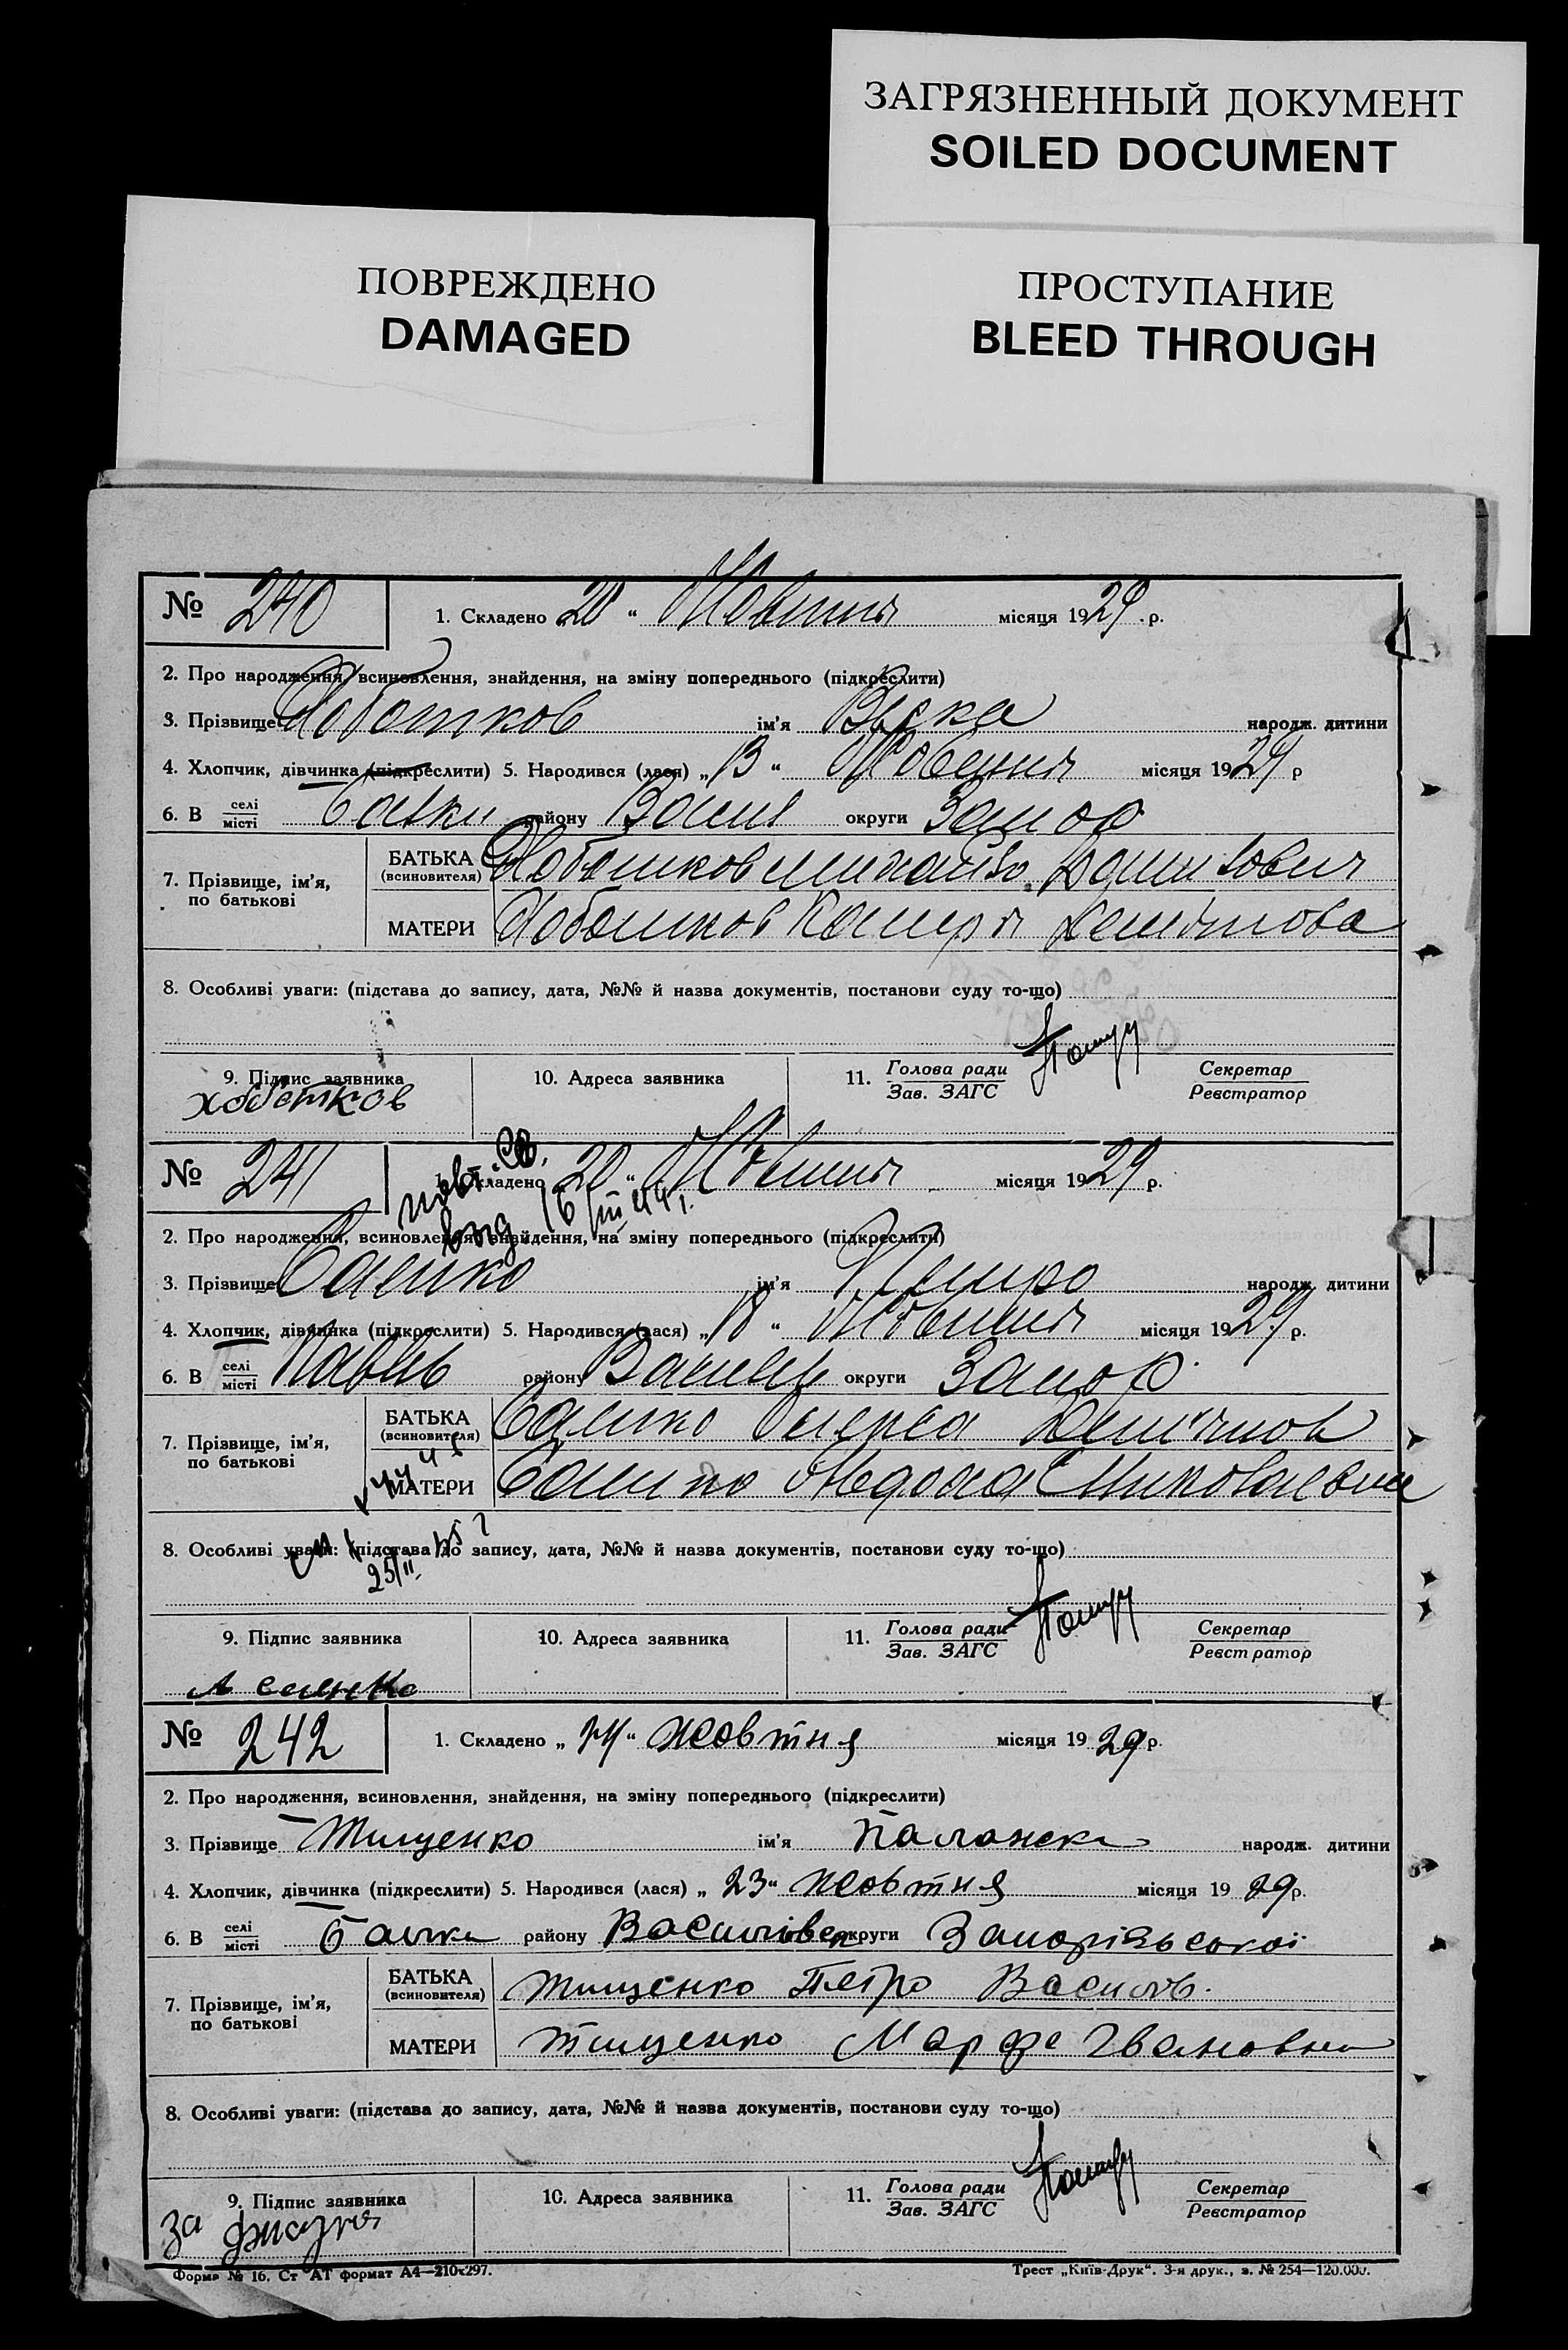 ЗАГРЯЗНЕННЫЙ ДОКУМЕНТ
SOILED DOCUMENT
ПОВРЕЖДЕНО
DAMAGED
ПРОСТУПАНИЕ
BLEED THROUGH
№ 240
1. Складено 20 “ Жовтня місяця 1929 р.
2. Про народження, всиновлення, знайдення, на зміну попереднього (підкреслити)
3. Прізвище Хоботков ім’я народж. дитини
4. Хлопчик, дівчинка (підкреслити) 5. Народився (лася) „ 13 “ Жовтня місяця 1929 р
6. В селі місті Балки району Васил округи Запор
7. Прізвище, ім’я, по батькові
БАТЬКА (всиновителя) Хоботков Михайло Данилович
МАТЕРИ Хоботков
8. Особливі уваги: (підстава до запису, дата, №№ й назва документів, постанови суду то-що)
9. Підпис заявника 10. Адреса заявника 11. Голова ради Зав. ЗАГС Секретар Реєстратор
хоботков
№ 241
1. Складено 20 “ Жовтня місяця 1929 р.
повт. св.
вид. 16/III 44 г.
2. Про народження, всиновлення, знайдення, на зміну попереднього (підкреслити)
3. Прізвище Саенко ім’я Петро народж. дитини
4. Хлопчик, дівчинка (підкреслити) 5. Народився (лася) „ 18 “ Жовтня місяця 1929 р.
6. В селі місті району Василів округи Запор
7. Прізвище, ім’я, по батькові
БАТЬКА (всиновителя) Саенко
МАТЕРИ Саенко Миколаевна
8. Особливі уваги: (підстава до запису, дата, №№ й назва документів, постанови суду то-що)
25/II
9. Підпис заявника 10. Адреса заявника 11. Голова ради Зав. ЗАГС Секретар Реєстратор
Саенко
№ 242
1. Складено „ 24 “ жовтня місяця 19 29 р.
2. Про народження, всиновлення, знайдення, на зміну попереднього (підкреслити)
3. Прізвище Тищенко ім’я Палажка народж. дитини
4. Хлопчик, дівчинка (підкреслити) 5. Народився (лася) „ 23 “ жовтня місяця 19 29 р.
6. В селі місті Балки району Василівск округи Запорізьської
7. Прізвище, ім’я, по батькові
БАТЬКА (всиновителя) Тищенко Петро Василь.
МАТЕРИ Тищенко Марфа Івановна
8. Особливі уваги: (підстава до запису, дата, №№ й назва документів, постанови суду то-що)
9. Підпис заявника 10. Адреса заявника 11. Голова ради Зав. ЗАГС Секретар Реєстратор
за
Форма № 16. Ст АТ формат А4—210×297.
Трест „Київ-Друк“. 3-я друк., з. № 254—120.000.